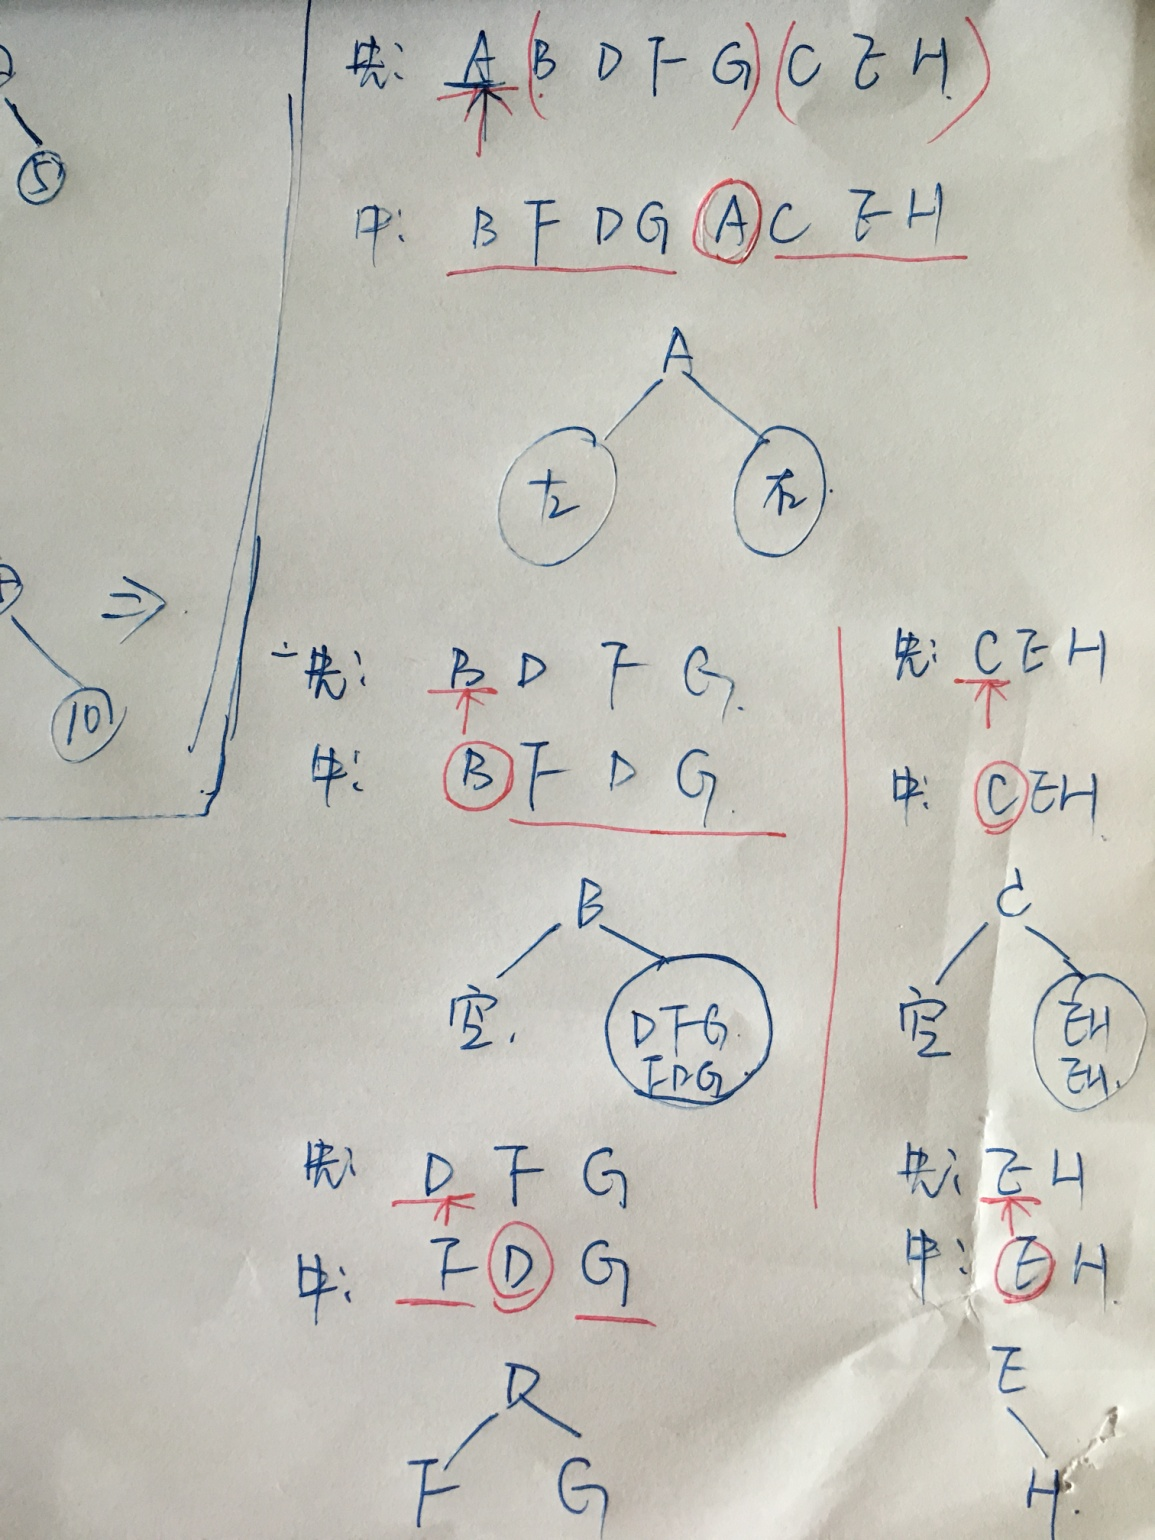 先: A (B D F G) (C E H)
中: B F D G A C E H
A
左 右
5
⇒
10
先: B D F G
中: B F D G
B
空. DFG
FDG
先: D F G
中: F D G
D
F G
先: C E H
中: C E H
C
空 EH
EH
先: E H
中: E H
E
H